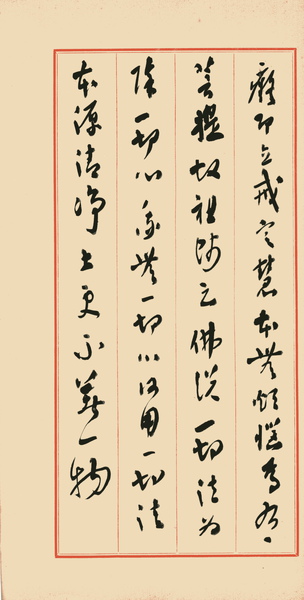 癡即立戒定慧本無煩惱焉有、
菩提故祖師云佛說一切法為
除一切心我無一切心何用一切法
本源清淨上更不著一物